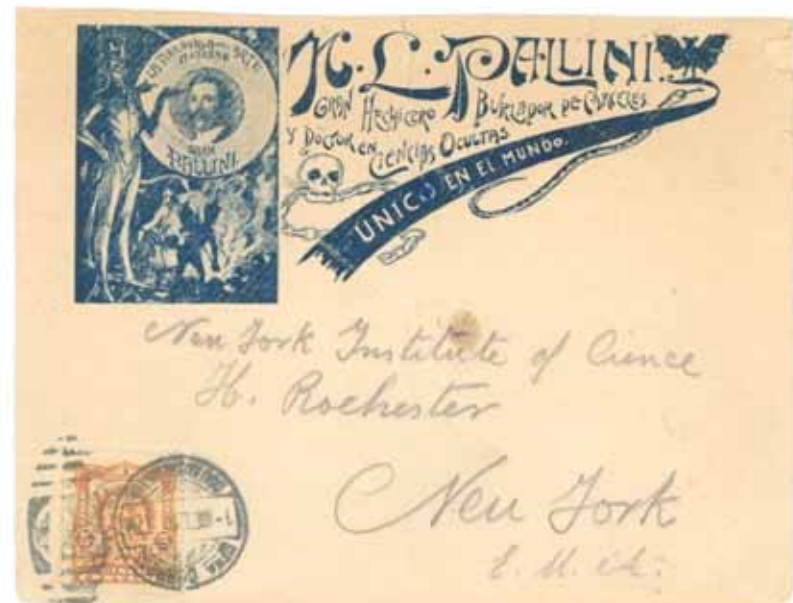 GRAN
PALLINI
N. L. PALLINI.
GRAN HECHICERO BURLADOR DE CARCELES
Y DOCTOR EN CIENCIAS OCULTAS
UNICO EN EL MUNDO.
New York Institute of Cience
H. Rochester
New York
E. U. A.